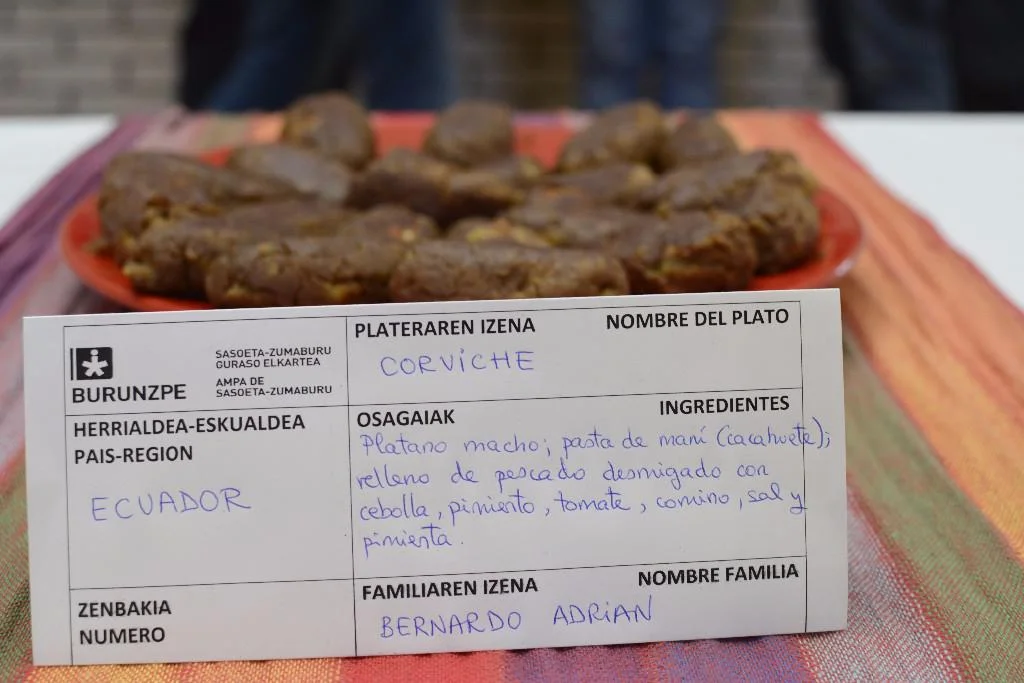 BURUNZPE
SASOETA-ZUMABURU
GURASO ELKARTEA
AMPA DE
SASOETA-ZUMABURU
PLATERAREN IZENA NOMBRE DEL PLATO
CORVICHE
HERRIALDEA-ESKUALDEA
PAIS-REGION
ECUADOR
OSAGAIAK INGREDIENTES
Platano macho; pasta de maní (cacahuete);
relleno de pescado desmigado con
cebolla, pimiento, tomate, comino, sal y
pimienta.
ZENBAKIA
NUMERO
FAMILIAREN IZENA NOMBRE FAMILIA
BERNARDO ADRIAN